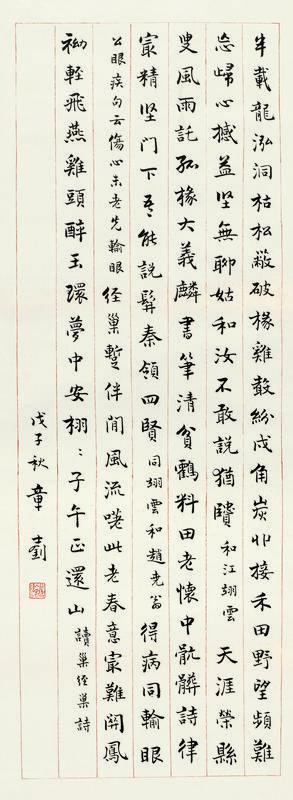 半載龍泓洞枯松蔽破椽雞聲紛戍角炭卯接禾田野望頻難
忘歸心撼益堅無聊姑和汝不敢說猶 和江翊雲 天涯榮縣
叟風雨託孤椽大義麟書筆清貧鶴料田老懷中骯髒詩律
最精堅門下吾能說髯秦領四賢 同翊雲和趙堯翁 得病同輸眼
公眼疾句云傷心未老先輸眼 經巢蹔伴閒風流嗟此老春意最難開鳳
袎輕飛燕雞頭醉玉環夢中安栩〻子午正還山 讀巢經巢詩
戊子秋章士釗